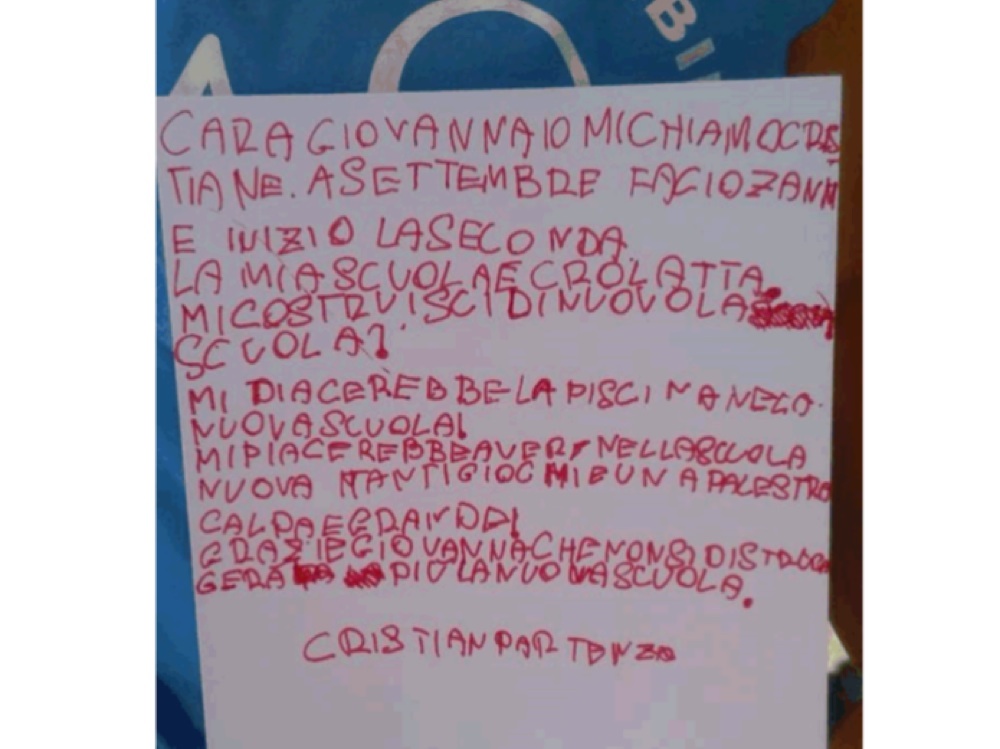 BI
CARA GIOVANNA IO MI CHIAMO CRIS
TIANE. A SETTEMBRE FACIO 7 ANNI
E INIZIO LA SECONDA.
LA MIA SCUOLA E CROLATTA.
MI COSTRUISCI DI NUOVO LA
SCUOLA?
MI PIACEREBBE LA PISCINA NELA
NUOVA SCUOLA!
MI PIACEREBBE AVERE NELLA SCUOLA
NUOVA TANTI GIOCHI E UNA PALESTRA
CALDA E GRANDE!
GRAZIE GIOVANNA CHE NON SI DISTRU
GERA PIU LA NUOVA SCUOLA.
CRISTIAN PARTENZO